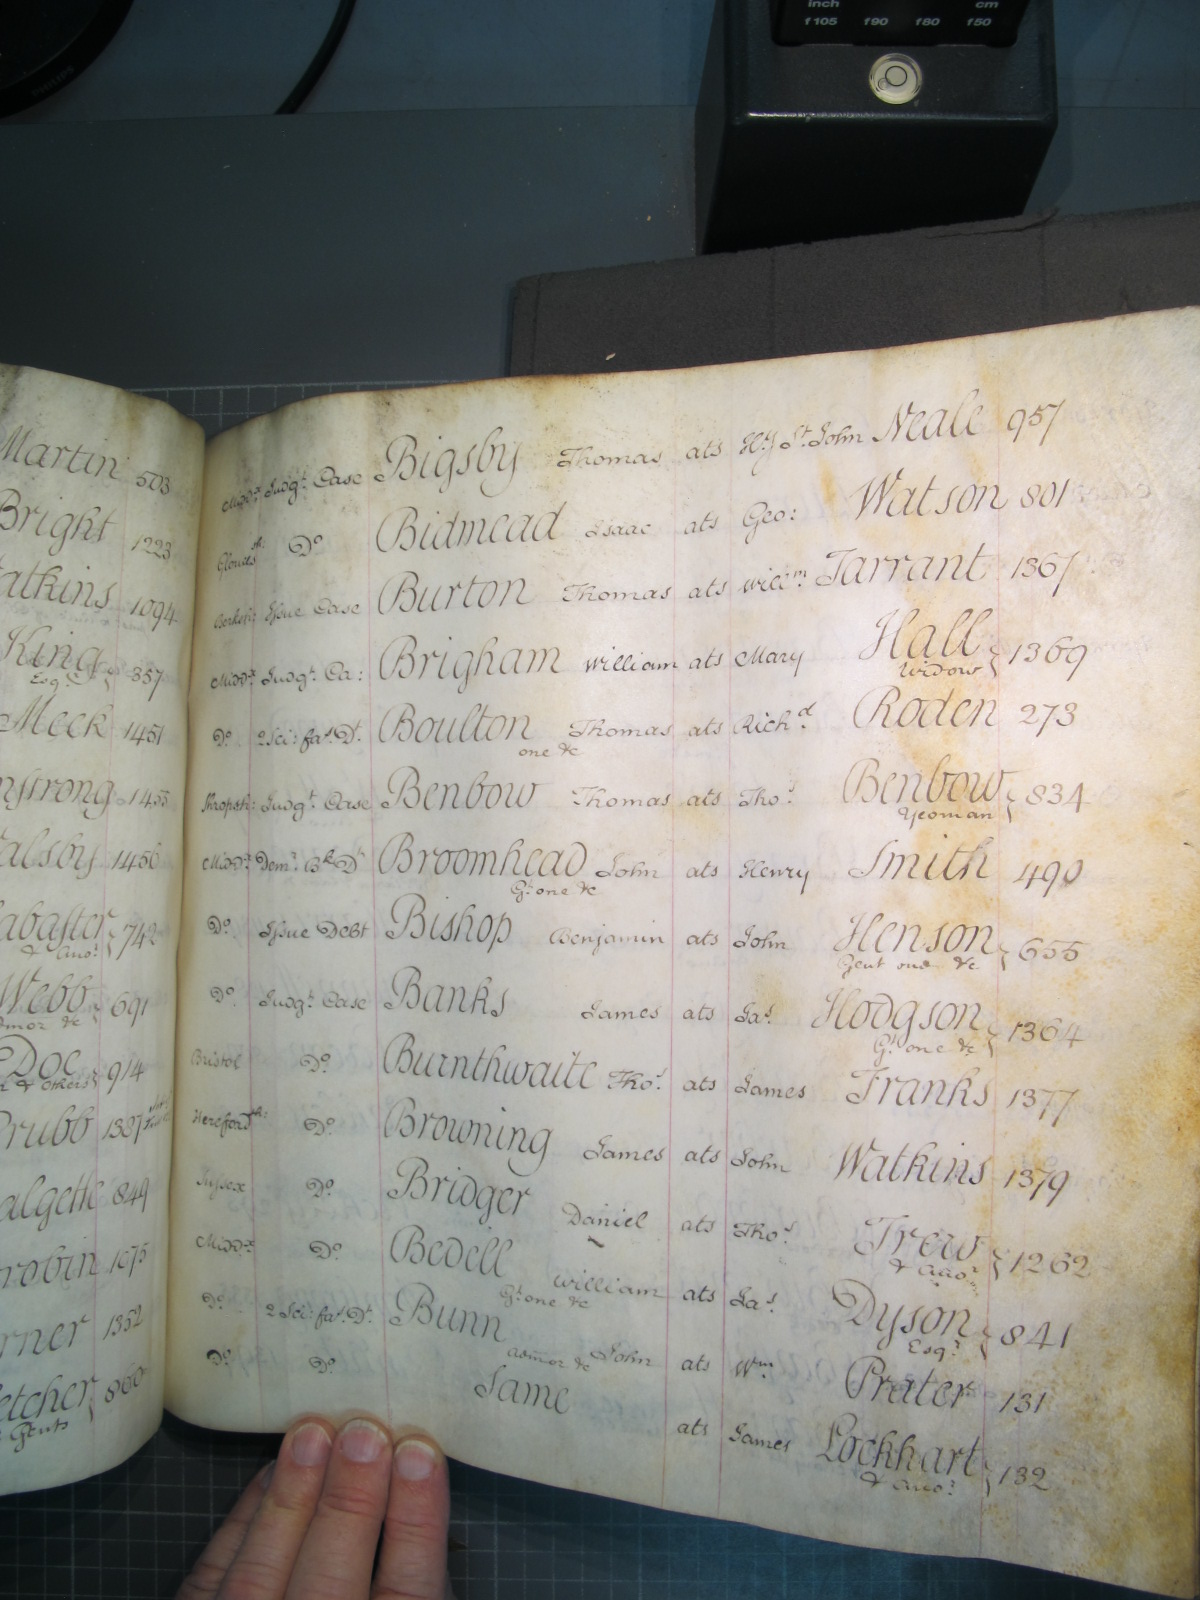 inch cm
f105 f90 f80 f50
PHILIPS
Martin 503
Bright 1223
atkins 1094
King 357
Esqr
Meek 1451
nstrong 1455
alsby 1456
abaster 742
& anor
Webb 691
Admor &c
Doe 914
& others
rubb 1387
algette 849
robin 1075
rner 1352
etcher 860
Gents
Middx Judgt Case Bigsby Thomas ats Hy St John Neale 957
Gloucesh: Do Bidmead Isaac ats Geo: Watson 801
Berksh: Issue Case Burton Thomas ats Willm Tarrant 1367
Middx Judgt Ca: Brigham William ats Mary Hall 1369
Widow
Do 2 Sci: fas. Dt. Boulton Thomas ats Richd Roden 273
one &c
Shropsh: Judgt Case Benbow Thomas ats Thos Benbow 834
Yeoman
Middx Demr Bk Dt Broomhead John ats Henry Smith 490
Gt one &c
Do Issue Debt Bishop Benjamin ats John Henson 655
Gent one &c
Do Judgt Case Banks James ats Jas Hodgson 1364
Gt one &c
Bristol Do Burnthwaite Thos ats James Franks 1377
Herefordsh: Do Browning James ats John Watkins 1379
Sussex Do Bridger Daniel ats Thos Trew 1262
& anor
Middx Do Bedell William ats Jas Dyson 841
Gt one &c Esqr
Do 2 Sci: fas. Dt. Bunn John ats Wm Prater 131
admor &c
Do Do Same ats James Lockhart 132
& anor